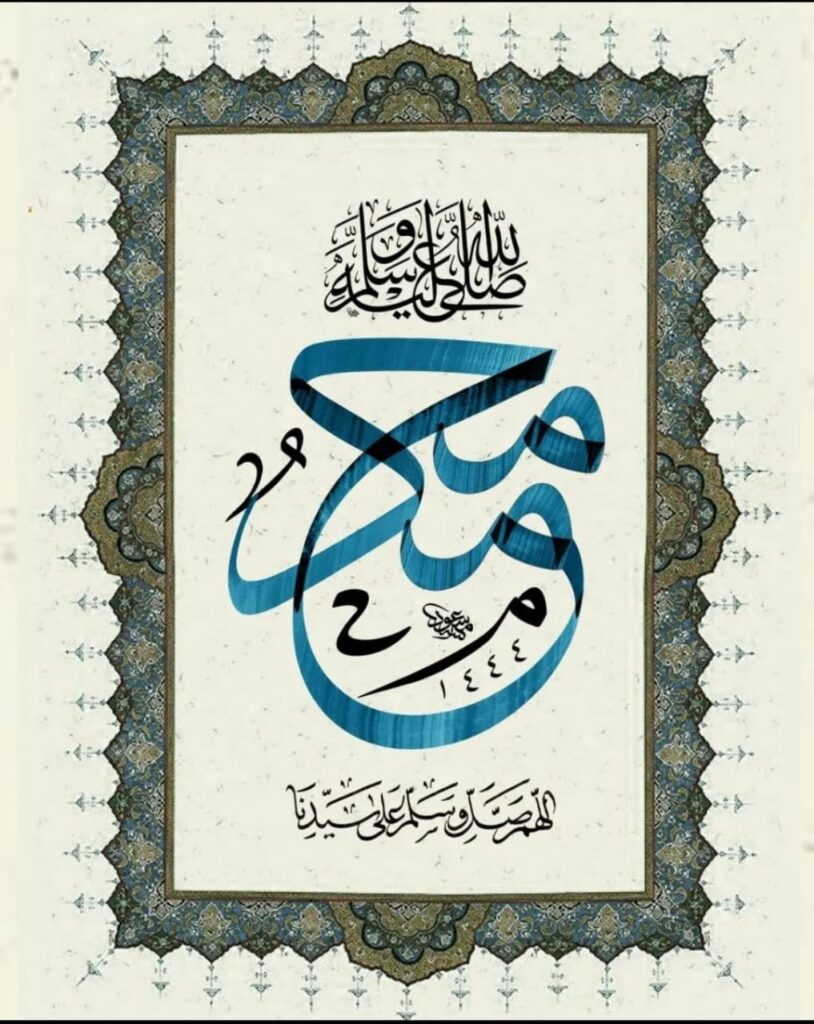 صَلَّى اللّٰهُ عَلَيْهِ وَسَلَّمَ
محمد
مسعود
١٤٤٤
اللّهم صَلِّ وسَلّم عَلى سَيّدِنَا